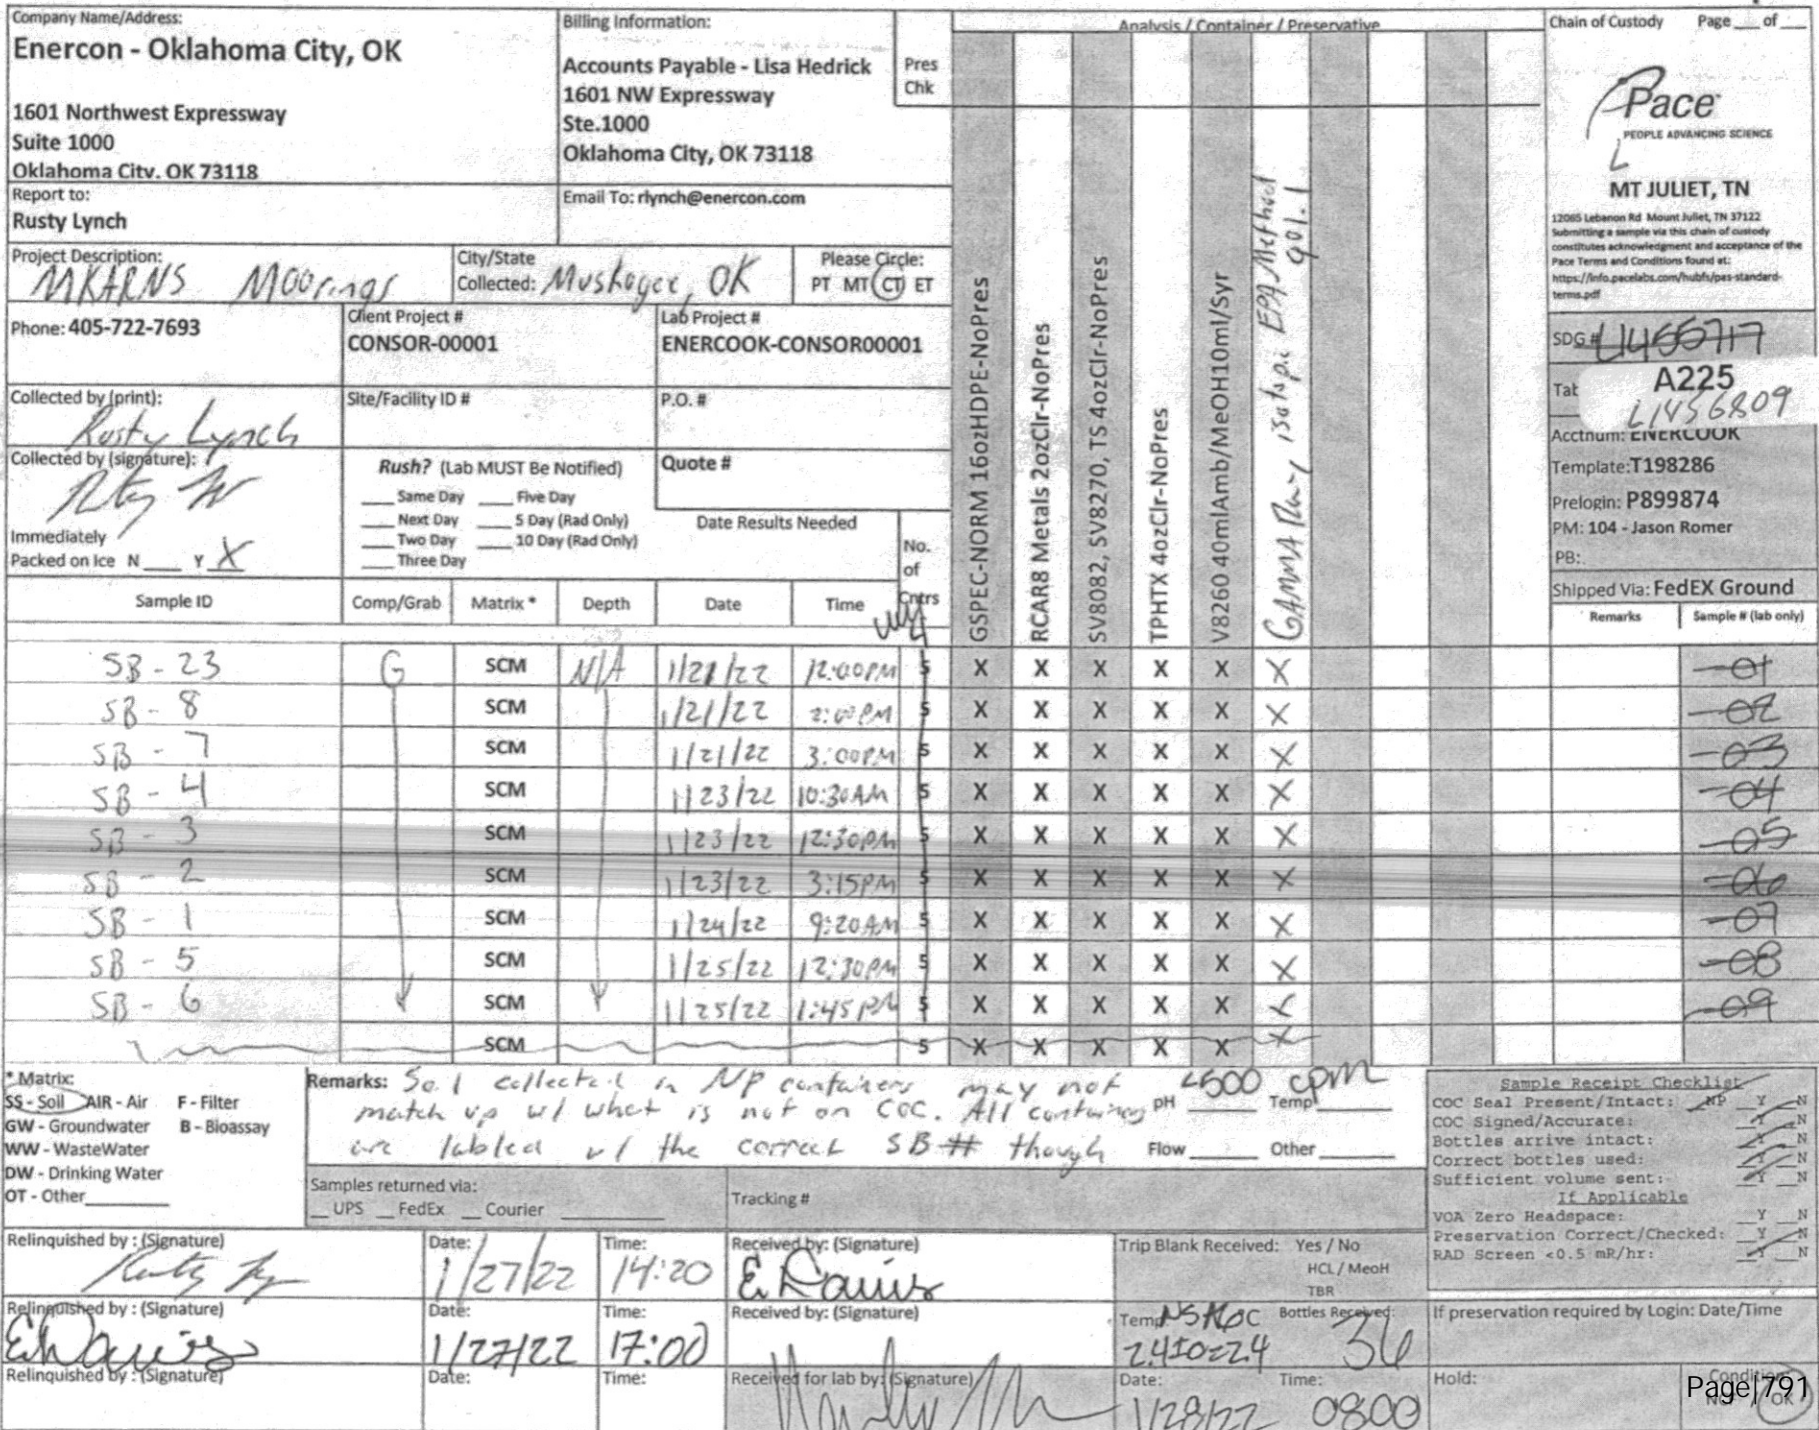 Company Name/Address:
Enercon - Oklahoma City, OK
1601 Northwest Expressway
Suite 1000
Oklahoma City, OK 73118
Billing Information:
Accounts Payable - Lisa Hedrick
1601 NW Expressway
Ste.1000
Oklahoma City, OK 73118
Pres
Chk
Analysis / Container / Preservative
Chain of Custody Page ___ of ___
Pace
PEOPLE ADVANCING SCIENCE
MT JULIET, TN
12065 Lebanon Rd Mount Juliet, TN 37122
Submitting a sample via this chain of custody
constitutes acknowledgment and acceptance of the
Pace Terms and Conditions found at:
https://info.pacelabs.com/hubfs/pas-standard-
terms.pdf
Report to:
Rusty Lynch
Email To: rlynch@enercon.com
Project Description:
MKARNS Moorings
City/State
Collected: Muskogee, OK
Please Circle:
PT MT CT ET
Phone: 405-722-7693
Client Project #
CONSOR-00001
Lab Project #
ENERCOOK-CONSOR00001
Collected by (print):
Rusty Lynch
Site/Facility ID #
P.O. #
Collected by (signature):
Rush? (Lab MUST Be Notified)
___ Same Day ___ Five Day
___ Next Day ___ 5 Day (Rad Only)
___ Two Day ___ 10 Day (Rad Only)
___ Three Day
Quote #
Date Results Needed
Immediately
Packed on Ice N ___ Y X
No.
of
Cntrs
4
GSPEC-NORM 16ozHDPE-NoPres
RCAR8 Metals 2ozClr-NoPres
SV8082, SV8270, TS 4ozClr-NoPres
TPHTX 4ozClr-NoPres
V8260 40mlAmb/MeOH10ml/Syr
GAMMA isotopic EPA Method
901.1
SDG # L1455717
Tab
A225
L1456809
Acctnum: ENERCOOK
Template:T198286
Prelogin: P899874
PM: 104 - Jason Romer
PB:
Shipped Via: FedEX Ground
Remarks Sample # (lab only)
Sample ID Comp/Grab Matrix * Depth Date Time
SB - 23 G SCM N/A 1/21/22 12:00PM 5 X X X X X X -01
SB - 8 SCM 1/21/22 2:00PM 5 X X X X X X -02
SB - 7 SCM 1/21/22 3:00PM 5 X X X X X X -03
SB - 4 SCM 1/23/22 10:30AM 5 X X X X X X -04
SB - 3 SCM 1/23/22 12:30PM 5 X X X X X X -05
SB - 2 SCM 1/23/22 3:15PM 5 X X X X X X -06
SB - 1 SCM 1/24/22 9:20AM 5 X X X X X X -07
SB - 5 SCM 1/25/22 12:30PM 5 X X X X X X -08
SB - 6 SCM 1/25/22 1:45PM 5 X X X X X X -09
SCM 5 X X X X X X
* Matrix:
SS - Soil AIR - Air F - Filter
GW - Groundwater B - Bioassay
WW - WasteWater
DW - Drinking Water
OT - Other
Remarks: Soil collected in NP containers may not
match up w/ what is not on COC. All containers
are labled w/ the correct SB # though
<500 cpm
pH ___ Temp ___
Flow ___ Other ___
Samples returned via:
__ UPS __ FedEx __ Courier
Tracking #
Sample Receipt Checklist
COC Seal Present/Intact: NP Y N
COC Signed/Accurate: Y N
Bottles arrive intact: Y N
Correct bottles used: Y N
Sufficient volume sent: Y N
If Applicable
VOA Zero Headspace: Y N
Preservation Correct/Checked: Y N
RAD Screen <0.5 mR/hr: Y N
Relinquished by : (Signature)
Date: 1/27/22
Time: 14:20
Received by: (Signature)
Trip Blank Received: Yes / No
HCL / MeoH
TBR
Relinquished by : (Signature)
Date: 1/27/22
Time: 17:00
Received by: (Signature)
Temp °C Bottles Received:
2.4±0=2.4 36
If preservation required by Login: Date/Time
Relinquished by : (Signature)
Date:
Time:
Received for lab by: (Signature)
Date: 1/28/22
Time: 0800
Hold:
Condition:
NCF / OK
Page|791